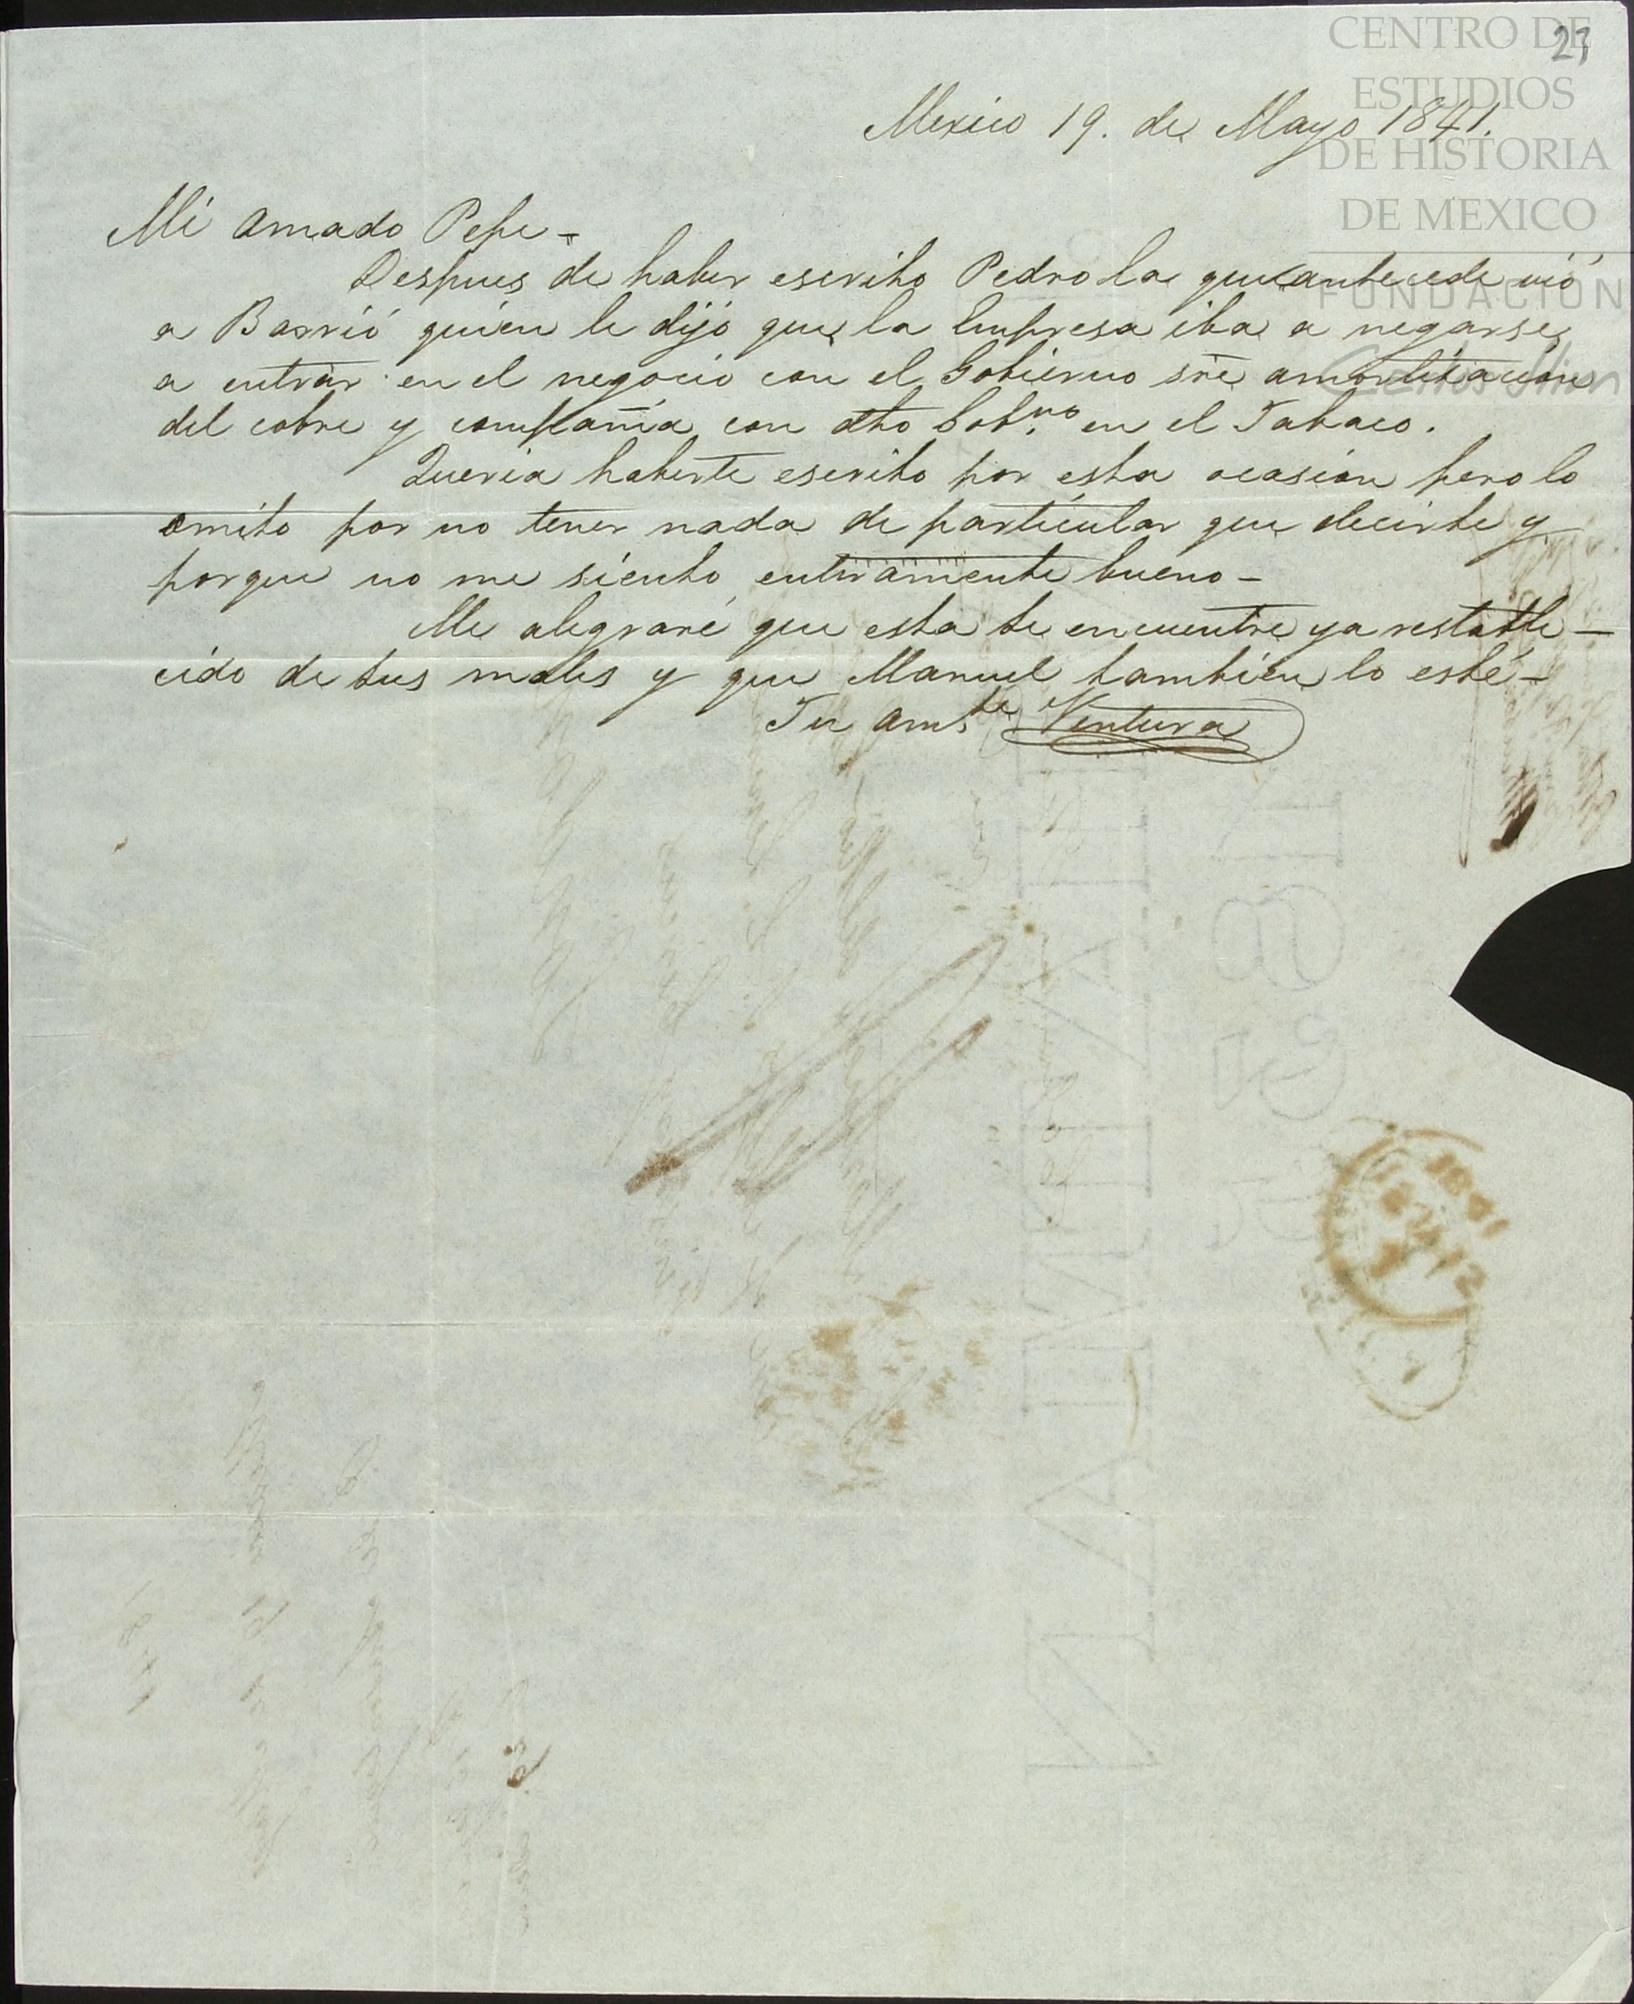 27
CENTRO DE
ESTUDIOS
DE HISTORIA
DE MEXICO
FUNDACION
Carlos Slim
Mexico 19. de Mayo 1841.
Mi amado Pepe -
Despues de haber escrito Pedro la que antecede vió
a Barrió quien le dijo que la Empresa iba a negarse
a entrar en el negocio con el Gobierno sre amortización
del cobre y compañia con dho Gob.no en el Tabaco.
Queria haberte escrito por esta ocasion pero lo
omito por no tener nada de particular que decirte y
porque no me siento enteramente bueno -
Me alegraré que esta te encuentre ya restable-
cido de tus males y que Manuel tambien lo esté -
Tu am.te Ventura
1841